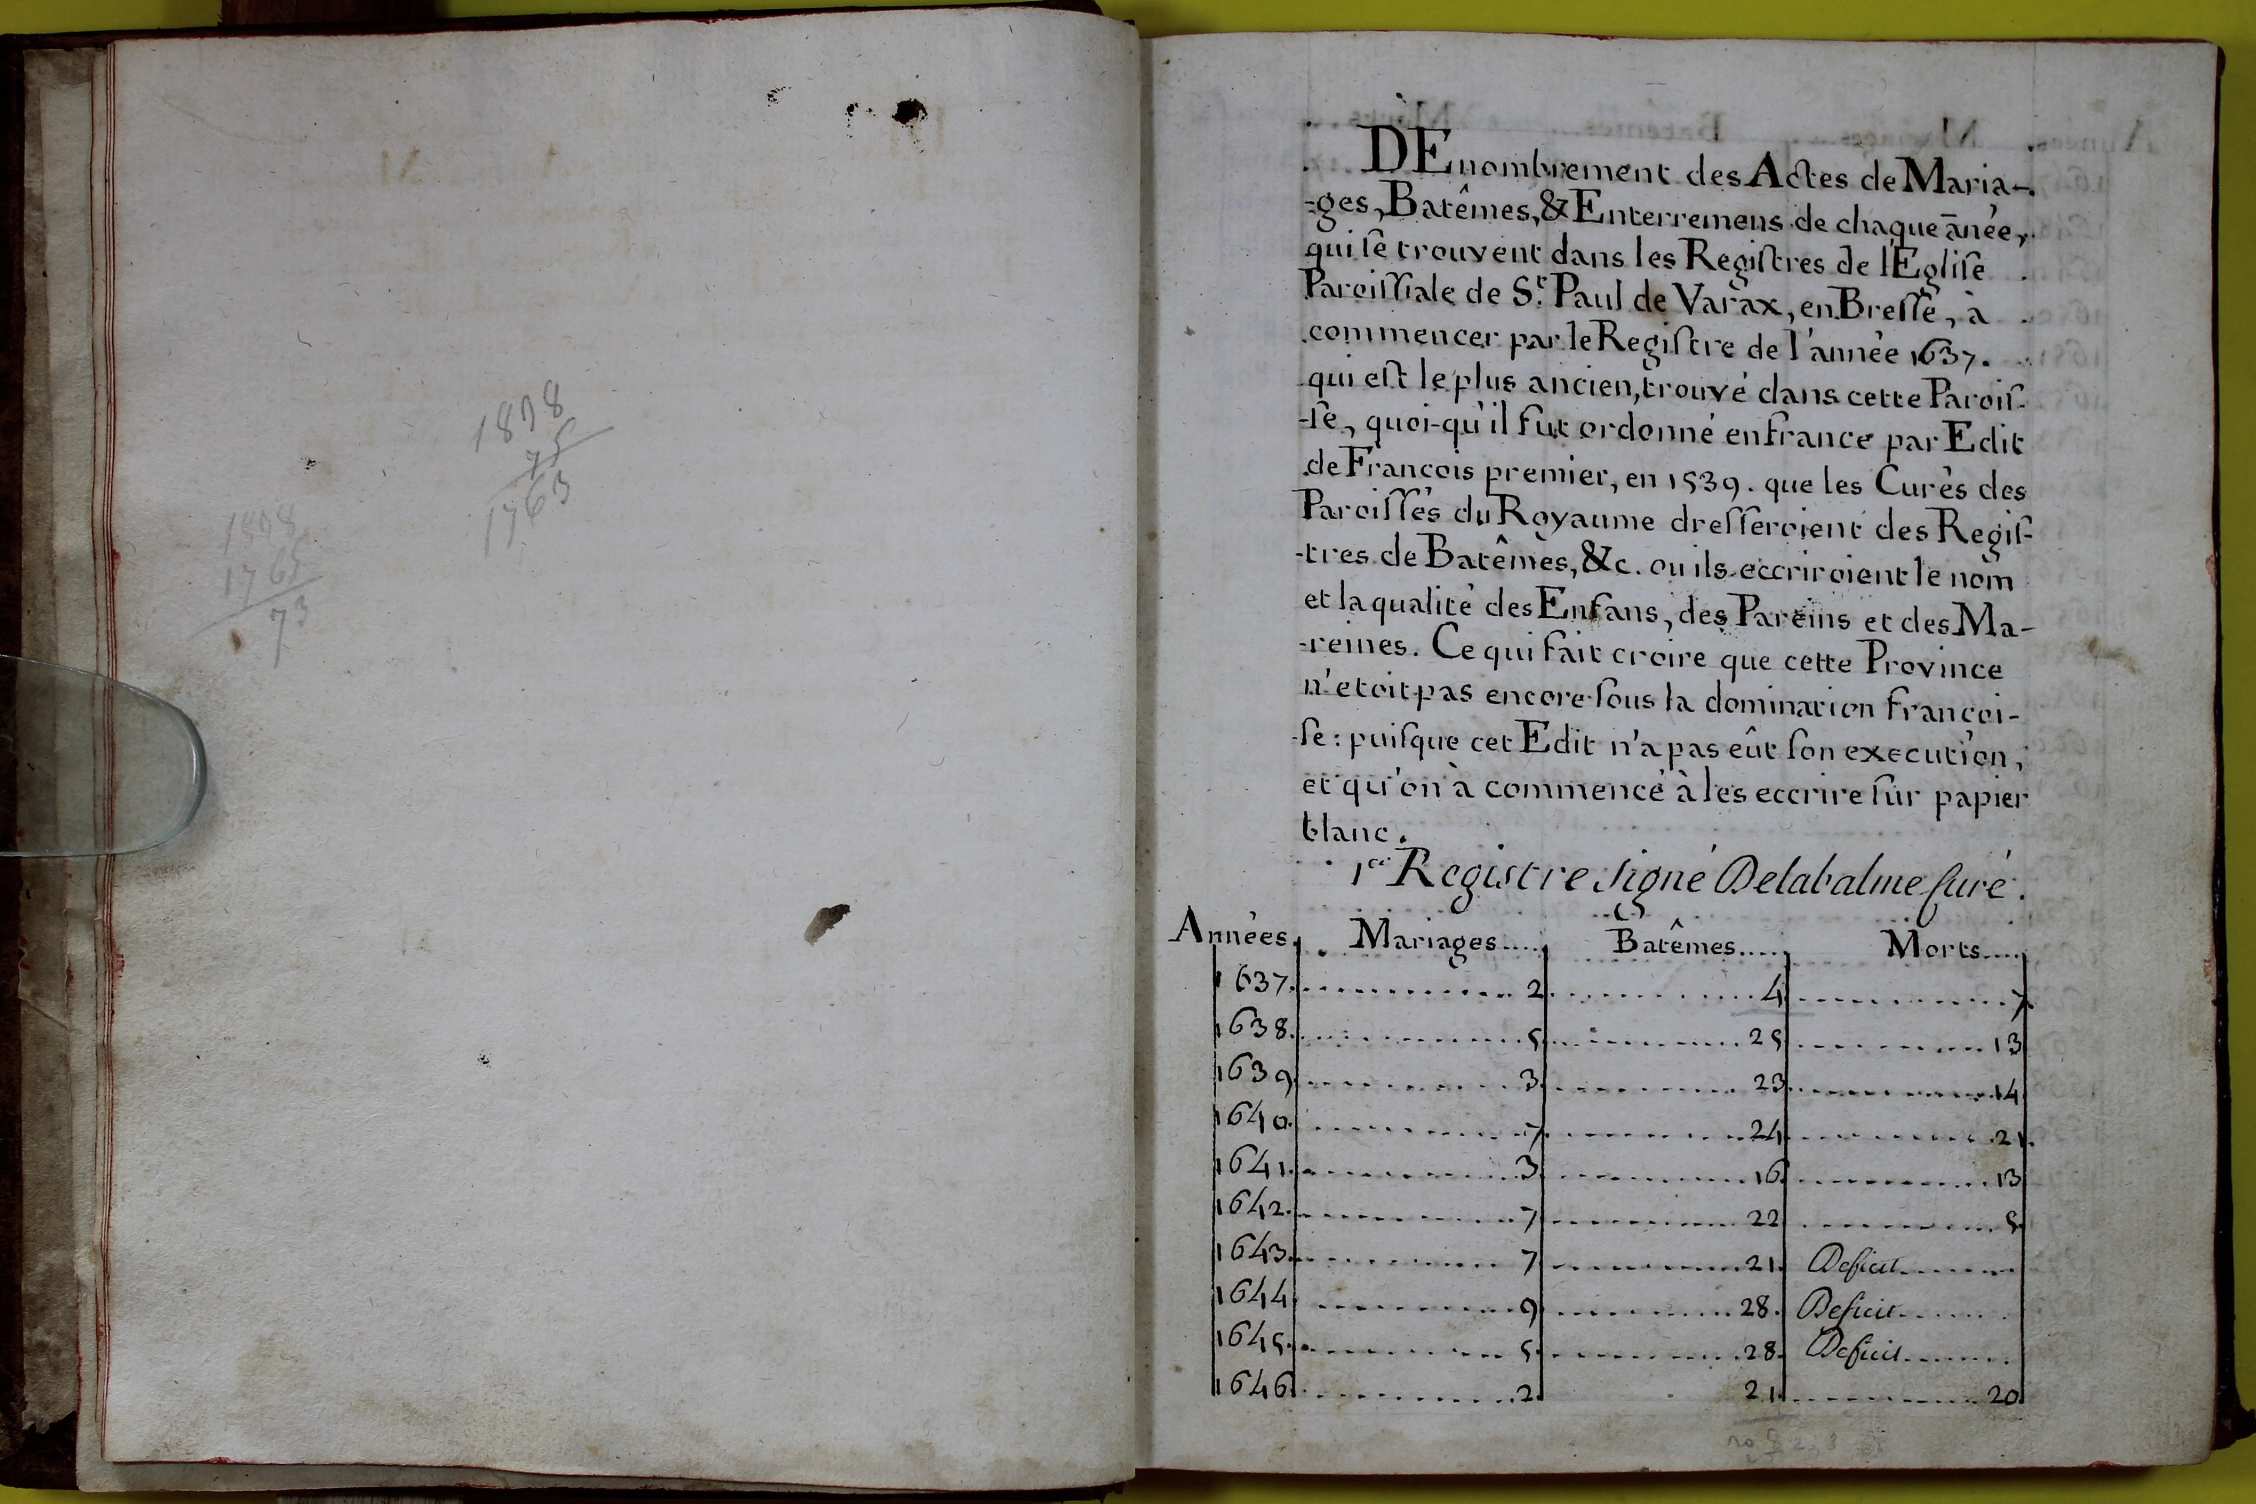 1838
75
1763
1808
1765
73
DEnombrement des Actes de Maria-
-ges, Batêmes, & Enterremens de chaque āneé,
qui se trouvent dans les Registres de l'Eglise
Paroissiale de St. Paul de Varax, en Bresse, à
commencer par le Registre de l'année 1637.
qui est le plus ancien, trouvé dans cette Parois-
-se, quoi-qu'il fut ordonné en france par Edit
de Francois premier, en 1539. que les Curés des
Paroisses du Royaume dresseroient des Regis-
-tres de Batêmes, &c. ou ils eccriroient le nom
et la qualité des Enfans, des Pareins et des Ma-
-reines. Ce qui fait croire que cette Province
n'etoit pas encore sous la domination françoi-
-se: puisque cet Edit n'a pas eût son execution;
et qu'on à commencé à les eccrire sur papier
blanc.
1er Registre signé Delabalme Curé.
Années. Mariages.... Batêmes.... Morts....
1637. 2 4 7
1638. 5 25 13
1639 3 23 14
1640. 7 24 21.
1641. 3 16 13
1642. 7 22 5
1643. 7 21. Deficit
1644 9 28. Deficit
1645. 5 28 Deficit
1646 2 21. 20